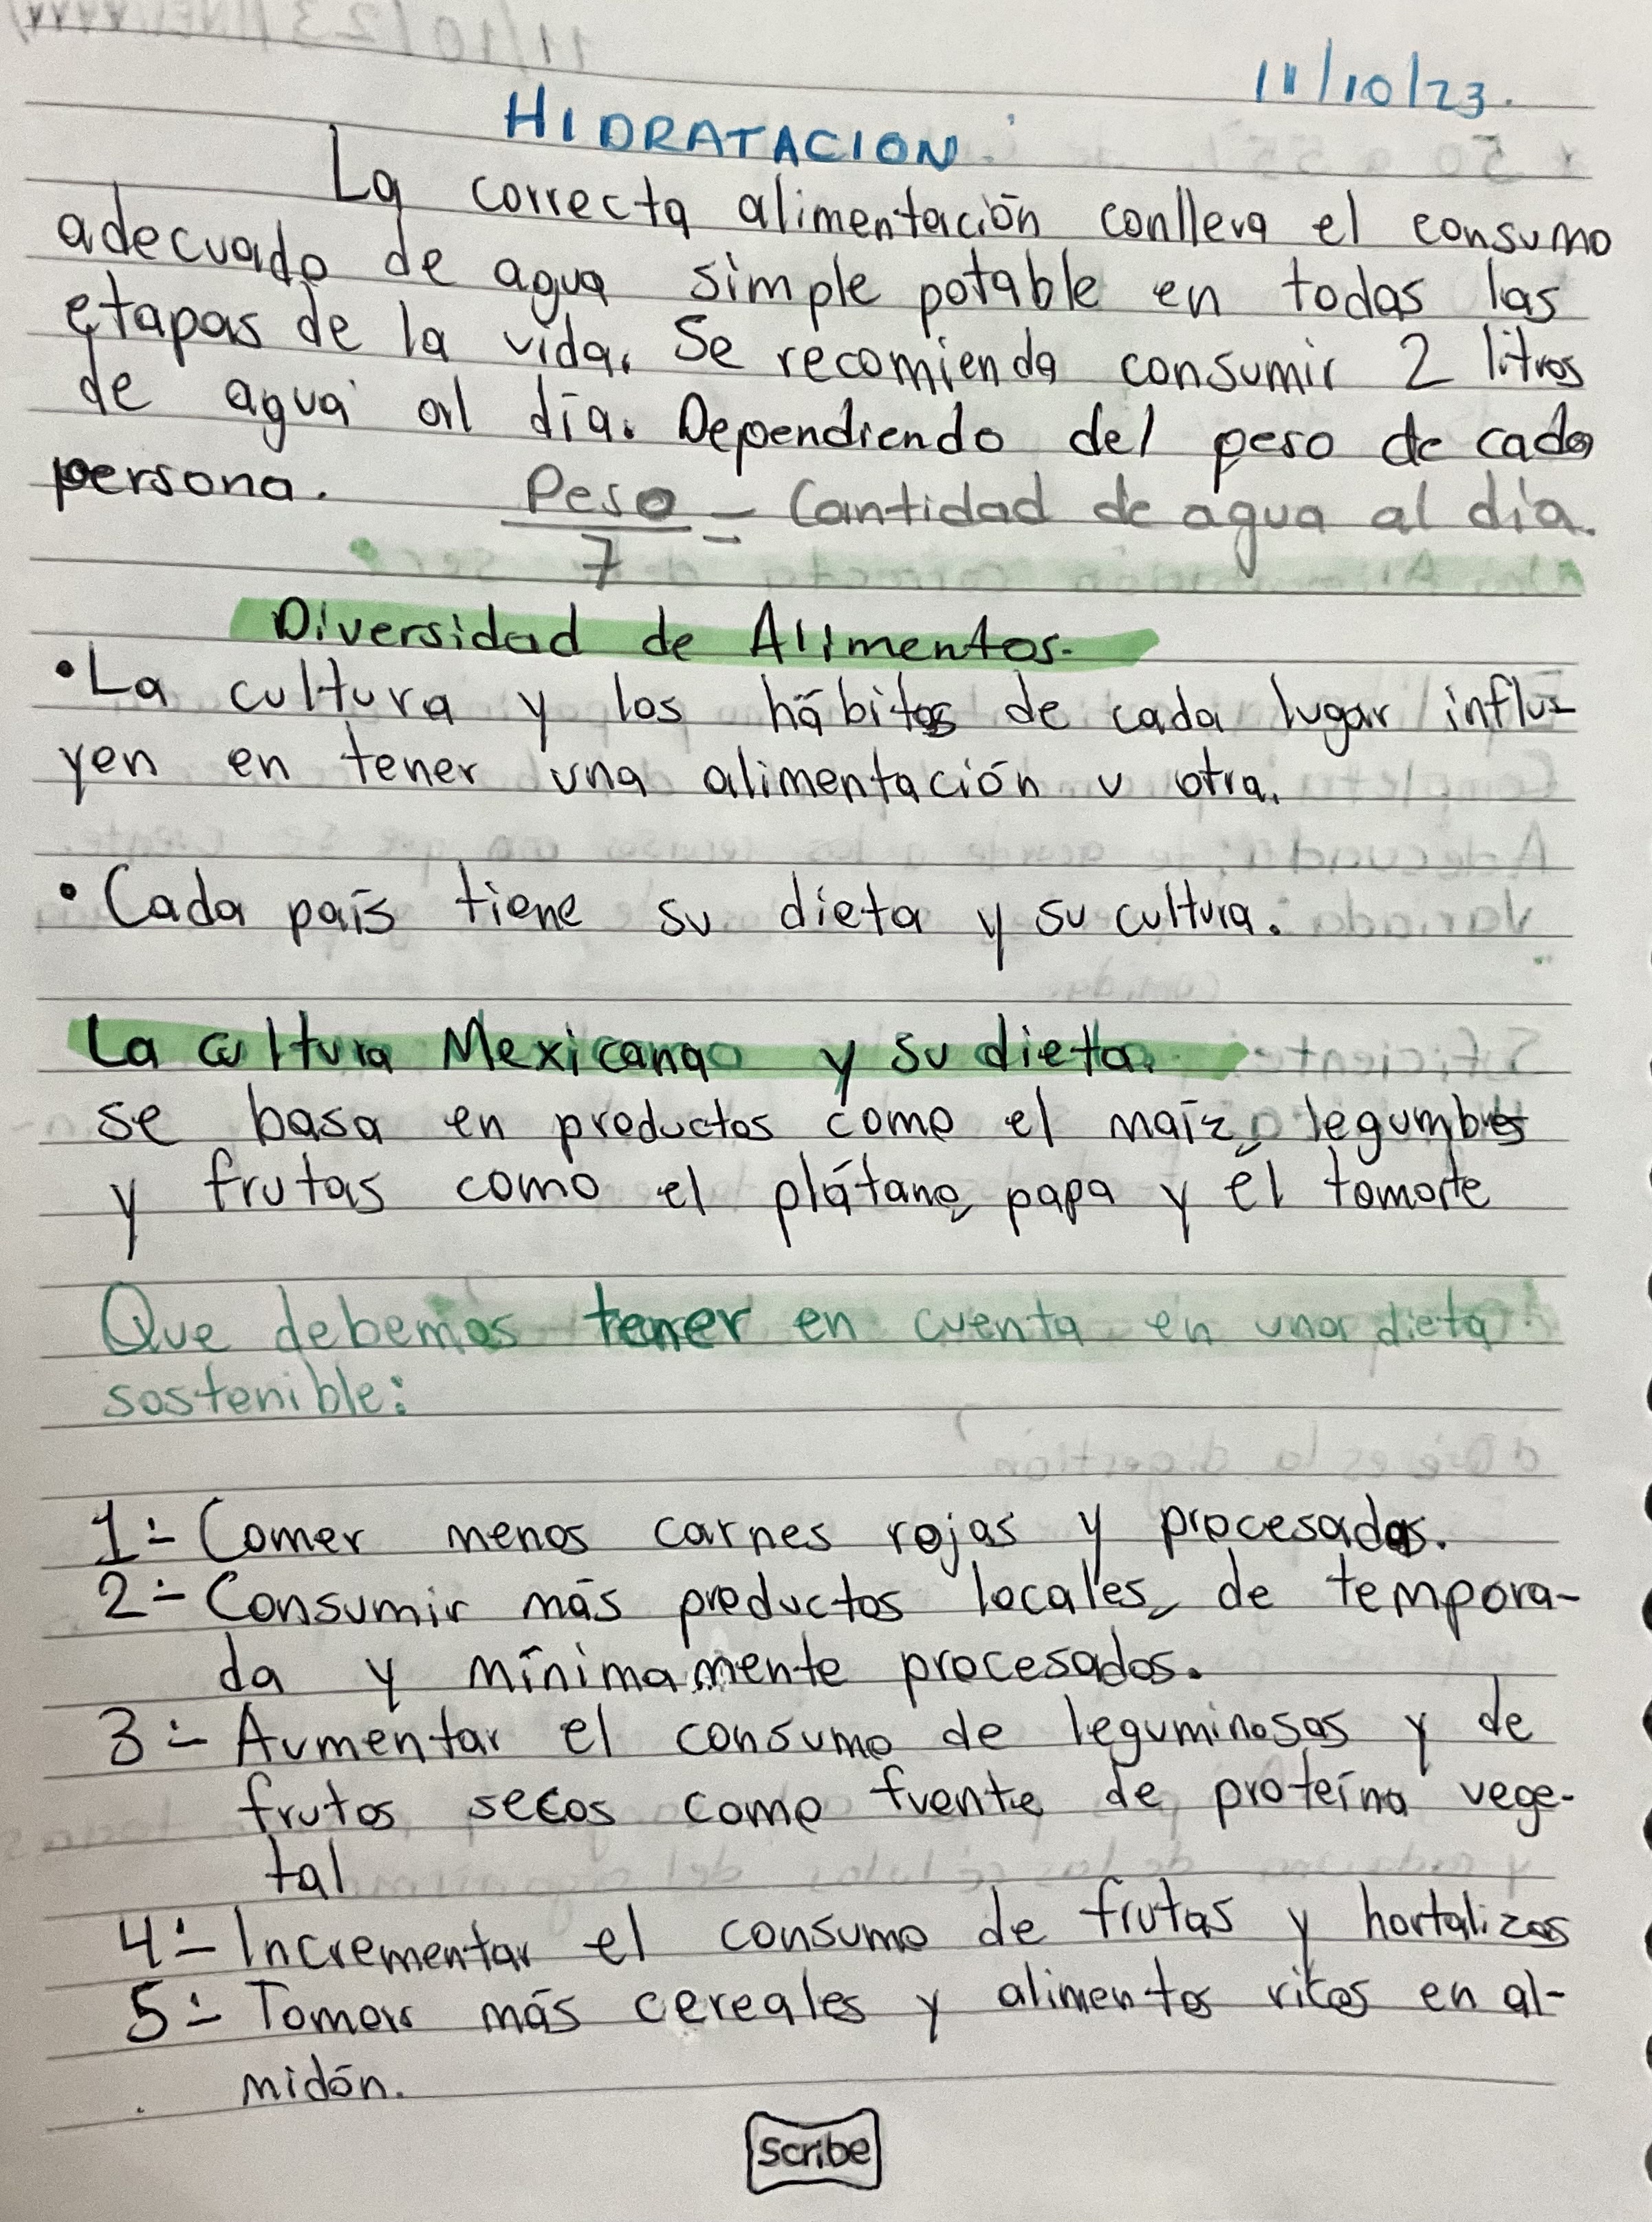 11/10/23.
HIDRATACION
La correcta alimentación conlleva el consumo
adecuado de agua simple potable en todas las
etapas de la vida. Se recomienda consumir 2 litros
de agua al día. Dependiendo del peso de cada
persona.
Peso/7 = Cantidad de agua al día.
Diversidad de Alimentos.
• La cultura y los hábitos de cada lugar influ-
yen en tener una alimentación u otra.
• Cada país tiene su dieta y su cultura.
La cultura Mexicana y su dieta.
se basa en productos como el maíz, legumbres
y frutas como el plátano, papa y él tomate
Que debemos tener en cuenta en una dieta
sostenible:
1.- Comer menos carnes rojas y procesadas.
2.- Consumir más productos locales, de tempora-
da y mínimamente procesados.
3.- Aumentar el consumo de leguminosas y de
frutos secos como fuente de proteína vege-
tal
4.- Incrementar el consumo de frutas y hortalizas
5.- Tomar más cereales y alimentos ricos en al-
midón.
scribe